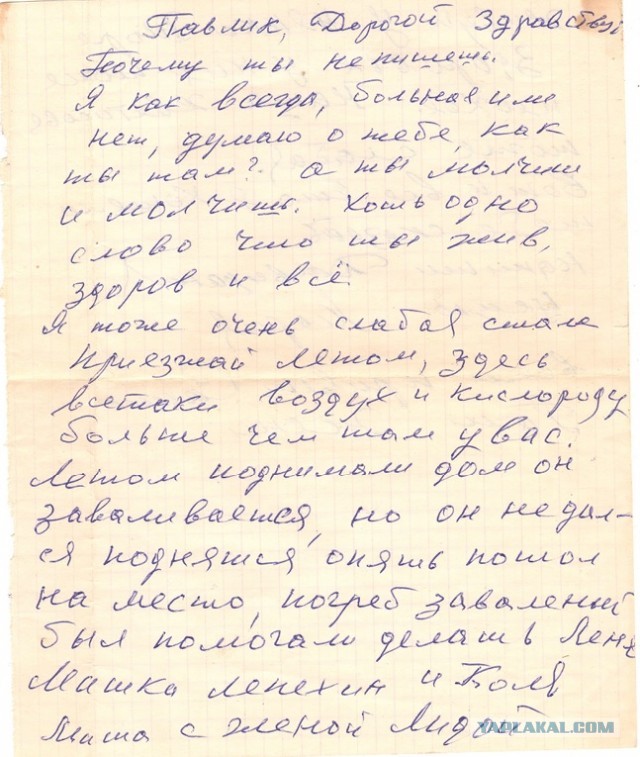 Павлик, Дорогой Здравствуй
Почему ты не пишешь.
Я как всегда, больная или
нет, думаю о тебе, как
ты там? а ты молчиш
и молчишь. Хоть одно
слово что ты жив,
здоров и всё.
Я тоже очень слабая стала
Приезжай летом, здесь
всетаки воздух и кислороду
больше чем там у вас.
Летом поднимали дом он
заваливается, но он недал-
ся поднятся, опять пошол
на место, погреб заваленый
был помогали делать Леня
Машка Лепехин и Коля
Миша с женой Лидой
YAPLAKAL.COM